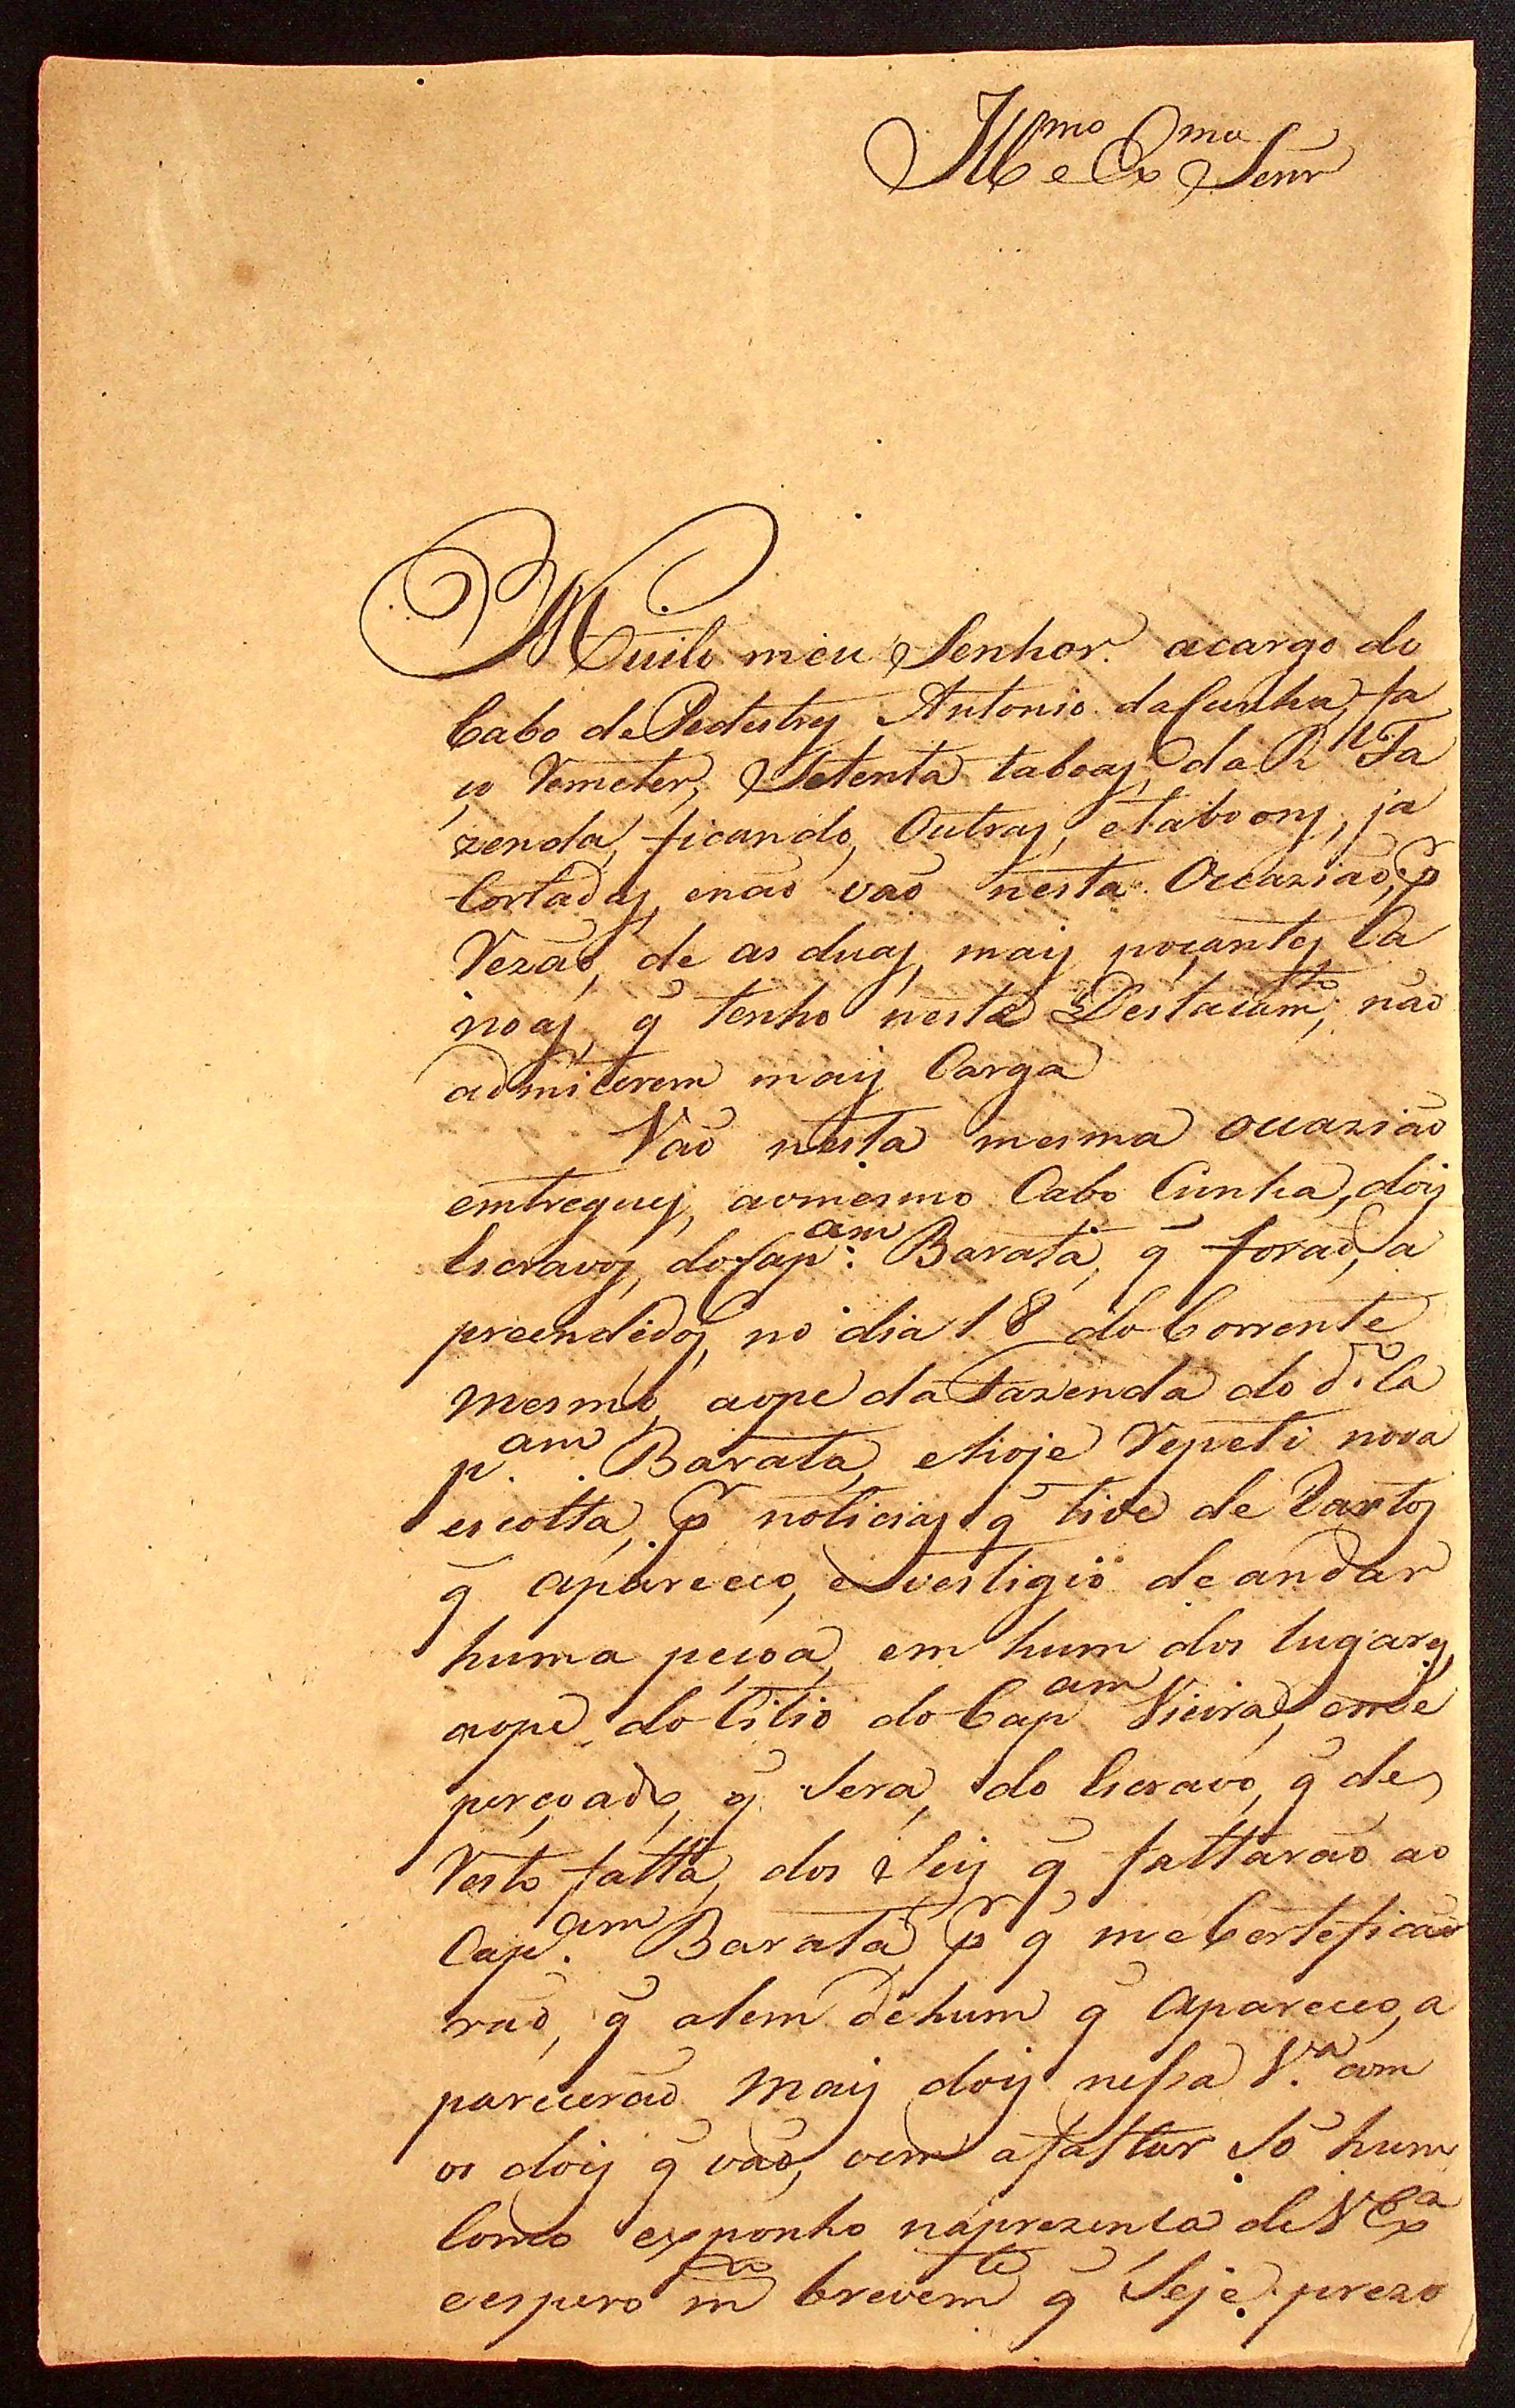 Ill.mo e Ex.mo Senr
Muito meu Senhor. acargo do
Cabo de Pedestres Antonio da Cunha, fa
ço Remeter, Setenta taboas, da R.l Fa
zenda, ficando, Outras, etaboons, ja
Cortadas, enaõ vaõ nesta Occaziaõ, pr
Rezaõ, de as duas, mais poçantes, Ca
noas, q̃ tenho neste Destacamto, naõ
admiterem mais Carga
Vaõ nesta mesma occaziaõ
emtregues, aomesmo Cabo Cunha, dois
Escravos, do Cap.am Barata, q̃ foraõ, a
preendidos, no dia 18 do Corrente
mesmo, aope da Fazenda do d.o Ca
p.am Barata, ehoje Repeti nova
escolta, pr noticias q̃ tive de Rastos
q̃ apareceo, e vestigio de andar
huma peçoa, em hum dos lugares,
aope do Citio do Cap.am Vieira, eme
perçoado, q̃ Sera, do Escravo, q̃ de
Resto falta, dos Seis q̃ faltaraõ ao
Cap.am Barata, pr q̃ meCertefica
raõ, q̃ alem dehum q̃ Apareceo, a
pareceraõ mais dois nessa V.a com
os dois q̃ vaõ, vem afaltar Só hum
Como exponho naprezença de V Ex.a
eespero mto brevemte q̃ Seje prezo